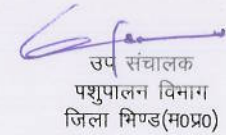 उप संचालक
पशुपालन विभाग
जिला भिण्ड(म0प्र0)